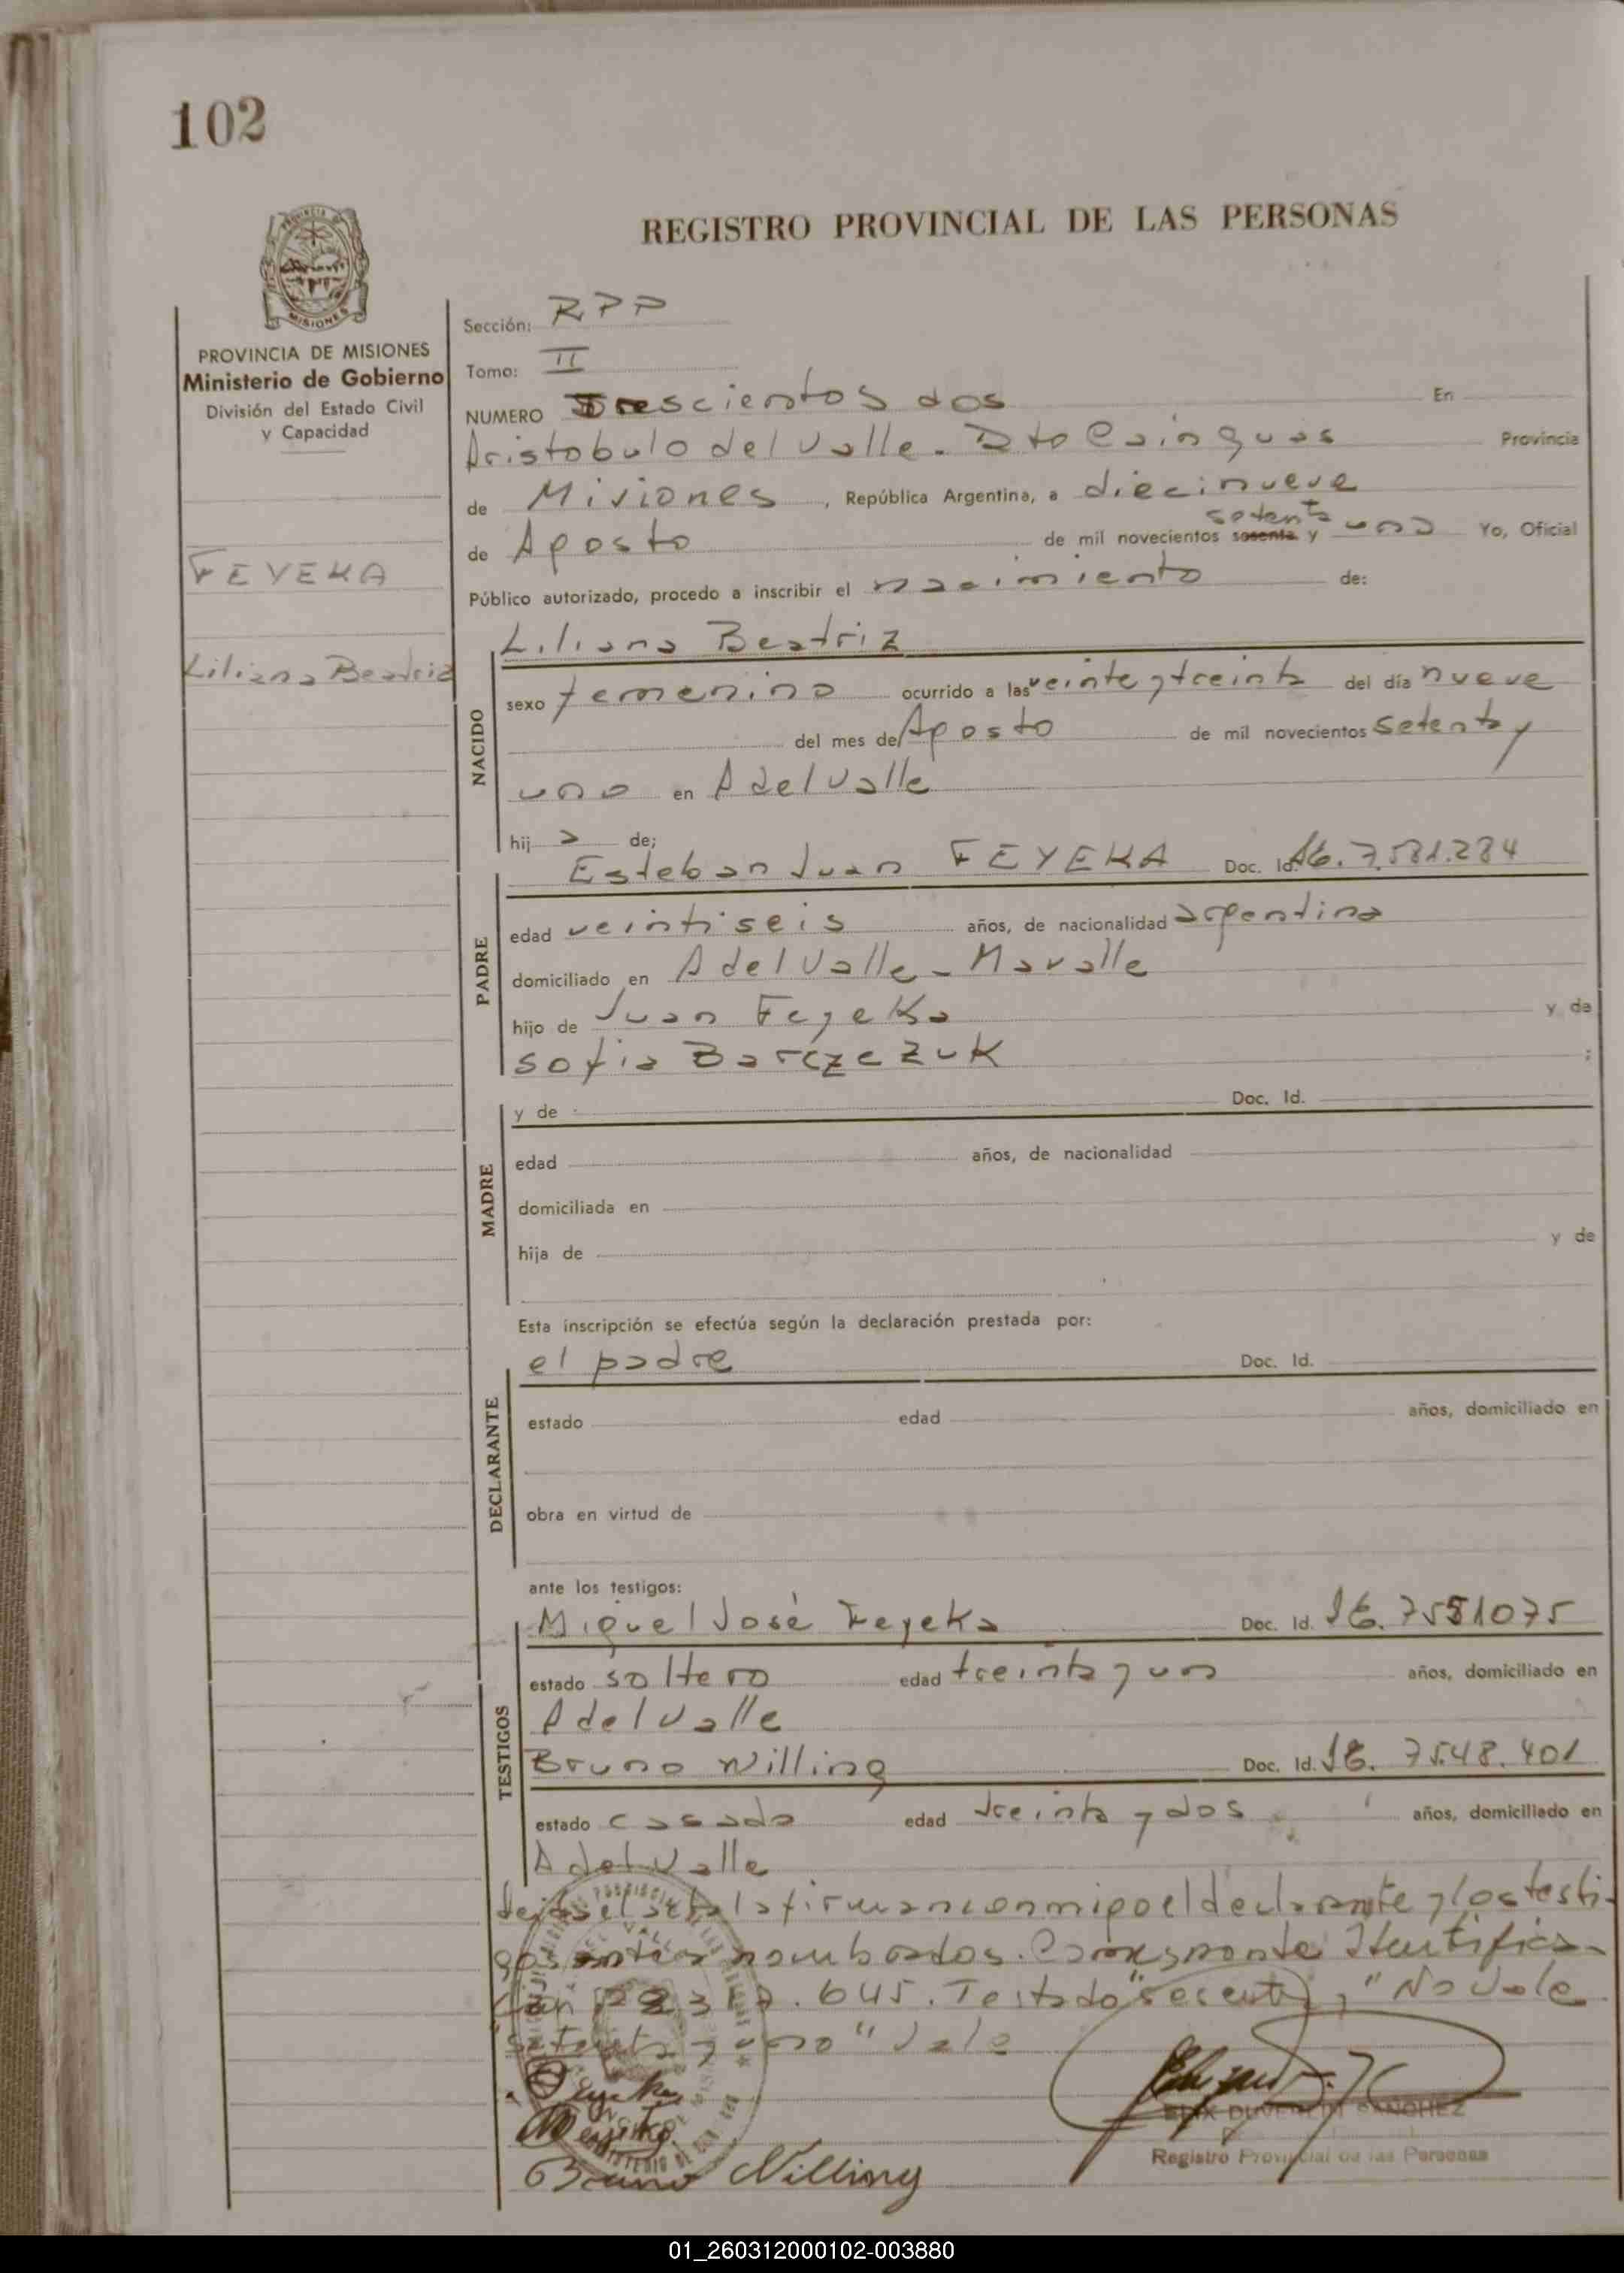 102
REGISTRO PROVINCIAL DE LAS PERSONAS
MISIONES
PROVINCIA DE MISIONES
Ministerio de Gobierno
División del Estado Civil
y Capacidad
FEYEKA
Liliana Beatriz
Sección: RPP
Tomo: II
NUMERO Trescientos dos En
Aristobulo del Valle. Dto Cainguas Provincia
de Misiones, República Argentina, a diecinueve
de Agosto de mil novecientos sesenta setenta y uno Yo, Oficial
Público autorizado, procedo a inscribir el nacimiento de:
NACIDO
Liliana Beatriz
sexo femenino ocurrido a las veinte y treinta del día nueve
del mes de Agosto de mil novecientos setenta y
uno en A del Valle
hij a de;
PADRE
Esteban Juan FEYEKA Doc. Id. 7.581.284
edad veintiseis años, de nacionalidad argentina
domiciliado en A del Valle -
hijo de Juan Feyeka y de
Sofia Barczezuk ;
MADRE
y de Doc. Id.
edad años, de nacionalidad
domiciliada en
hija de y de
Esta inscripción se efectúa según la declaración prestada por:
DECLARANTE
el padre Doc. Id.
estado edad años, domiciliado en
obra en virtud de
ante los testigos:
TESTIGOS
Miguel José Feyeka Doc. Id. 7551075
estado soltero edad treinta y un años, domiciliado en
A del Valle
Bruno Willing Doc. Id. 7548.401
estado casado edad treinta y dos años, domiciliado en
A del Valle
leida el acta la firman conmigo el declarante y los testi-
gos antes nombrados. Corresponde Identifica-
645. Testado "sesenta", "No Vale
"setenta y uno" Vale
Bruno Willing
SANCHEZ
Registro Provincial de las Personas
01_260312000102-003880